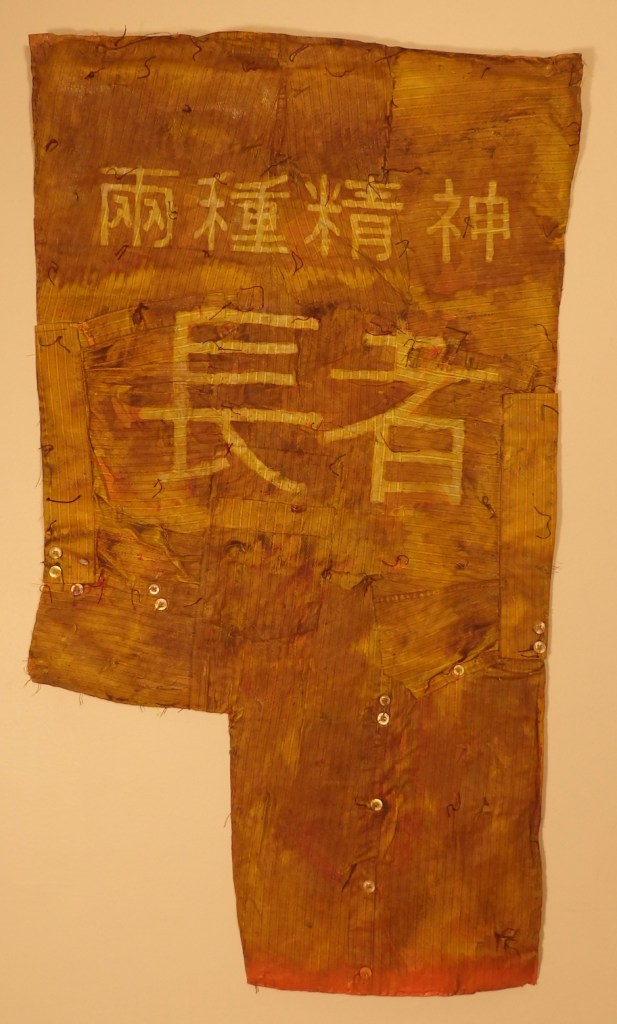 兩種精神
長者